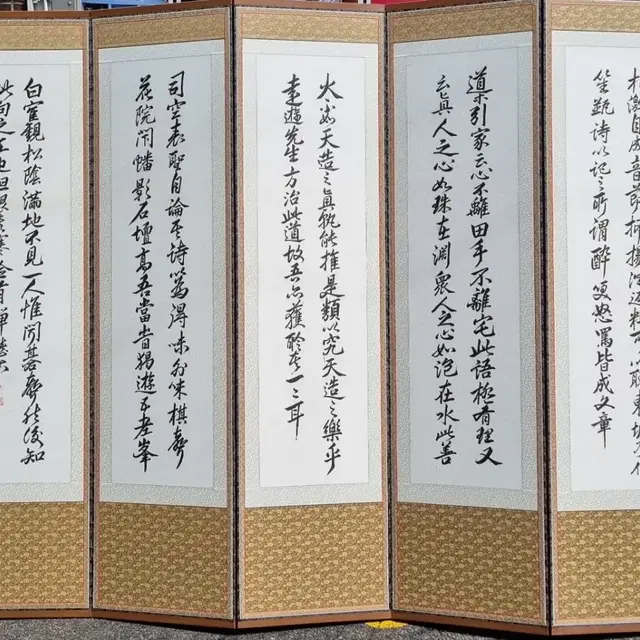 詩以記之所謂醉笑怒罵皆成文章
導引家云心不離田手不離宅此語極有理又
云真人之心如珠在淵眾人之心如泡在水此善
天造之真孰能推是類以究天造之樂乎
先生方治此道故吾亦獲聆其一二耳
司空表聖自論其詩以為得味外味棋聲
花院閉幡影石壇高吾嘗獨遊五老峯
白鶴觀松陰滿地不見一人惟聞棋聲然後知
此句之工也但恨其寒儉有僧態